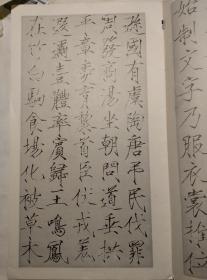 始制文字乃服衣裳推位
遜國有虞陶唐吊民伐罪
周發商湯坐朝問道垂拱
平章愛育黎首臣伏戎羌
遐邇壹體率賓歸王鳴鳳
在竹白駒食場化被草木